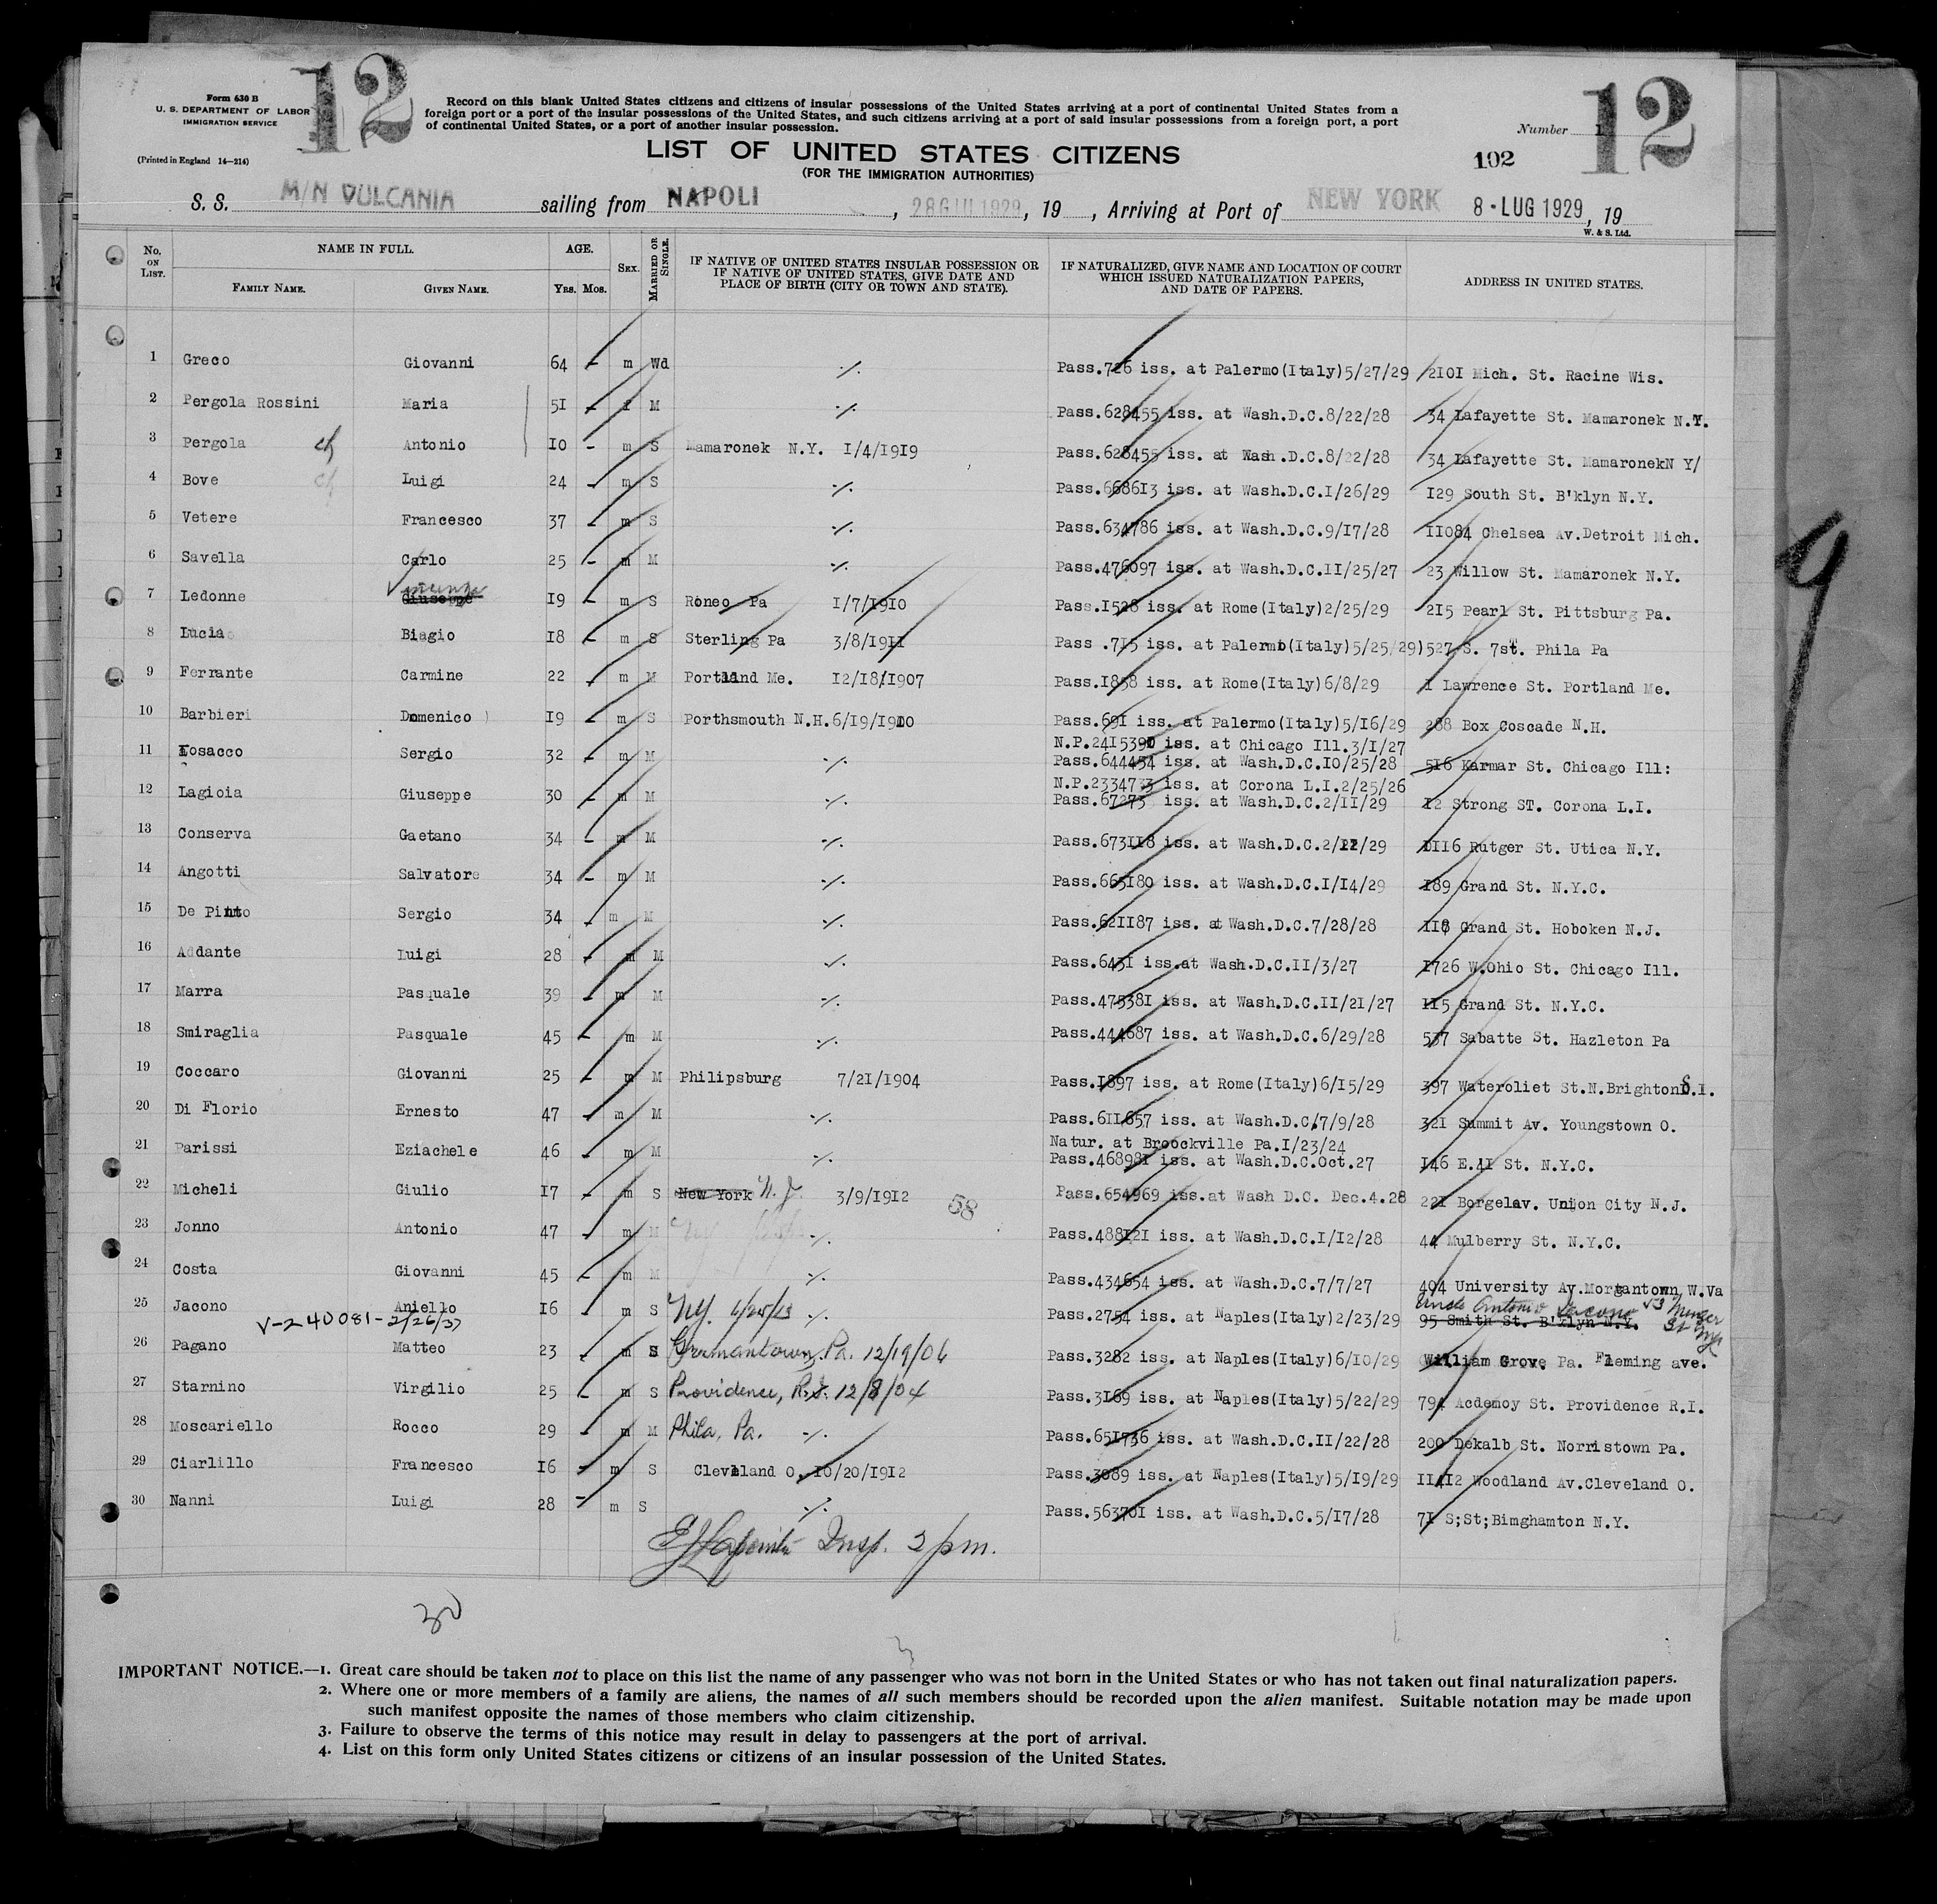 12
12
Form 630 B
U. S. DEPARTMENT OF LABOR
IMMIGRATION SERVICE
(Printed in England 14—214)
Record on this blank United States citizens and citizens of insular possessions of the United States arriving at a port of continental United States from a
foreign port or a port of the insular possessions of the United States, and such citizens arriving at a port of said insular possessions from a foreign port, a port
of continental United States, or a port of another insular possession.
Number
LIST OF UNITED STATES CITIZENS
102
(FOR THE IMMIGRATION AUTHORITIES)
S. S. M/N VULCANIA sailing from NAPOLI, 28 GIU 1929, 19 , Arriving at Port of NEW YORK 8 - LUG 1929, 19
W. & S. Ltd.
No. ON LIST. NAME IN FULL. FAMILY NAME. GIVEN NAME. AGE. YRS. MOS. SEX. MARRIED OR SINGLE. IF NATIVE OF UNITED STATES INSULAR POSSESSION OR IF NATIVE OF UNITED STATES, GIVE DATE AND PLACE OF BIRTH (CITY OR TOWN AND STATE). IF NATURALIZED, GIVE NAME AND LOCATION OF COURT WHICH ISSUED NATURALIZATION PAPERS, AND DATE OF PAPERS. ADDRESS IN UNITED STATES.
1 Greco Giovanni 64 - m Wd ./. Pass.726 iss. at Palermo(Italy)5/27/29 2101 Mich. St. Racine Wis.
2 Pergola Rossini Maria 51 - f M ./. Pass.628455 iss. at Wash.D.C.8/22/28 34 Lafayette St. Mamaronek N.Y.
3 Pergola Antonio 10 - m S Mamaronek N.Y. 1/4/1919 Pass.628455 iss. at Wash.D.C.8/22/28 34 Lafayette St. MamaronekN Y/
4 Bove Luigi 24 - m S ./. Pass.668613 iss. at Wash.D.C.1/26/29 129 South St. B'klyn N.Y.
5 Vetere Francesco 37 - m S ./. Pass.634786 iss. at Wash.D.C.9/17/28 11084 Chelsea Av.Detroit Mich.
6 Savella Carlo 25 - m M ./. Pass.476097 iss. at Wash.D.C.11/25/27 23 Willow St. Mamaronek N.Y.
Vincenzo
7 Ledonne Giuseppe 19 - m S Roneo Pa 1/7/1910 Pass.1528 iss. at Rome(Italy)2/25/29 215 Pearl St. Pittsburg Pa.
8 Lucia Biagio 18 - m S Sterling Pa 3/8/1911 Pass .715 iss. at Palermo(Italy)5/25/29)527 S. 7st. Phila Pa
9 Ferrante Carmine 22 - m M Portland Me. 12/18/1907 Pass.1858 iss. at Rome(Italy)6/8/29 1 Lawrence St. Portland Me.
10 Barbieri Domenico 19 - m S Porthsmouth N.H.6/19/1910 Pass.691 iss. at Palermo(Italy)5/16/29 288 Box Coscade N.H.
11 Losacco Sergio 32 - m M ./. N.P.2415390 iss. at Chicago Ill.3/1/27
Pass.644454 iss. at Wash.D.C.10/25/28 516 Karmar St. Chicago Ill:
12 Lagioia Giuseppe 30 - m M ./. N.P.2334733 iss. at Corona L.I.2/25/26
Pass.67273 iss. at Wash.D.C.2/11/29 12 Strong ST. Corona L.I.
13 Conserva Gaetano 34 - m M ./. Pass.673118 iss. at Wash.D.C.2/12/29 1116 Rutger St. Utica N.Y.
14 Angotti Salvatore 34 - m M ./. Pass.665180 iss. at Wash.D.C.1/14/29 189 Grand St. N.Y.C.
15 De Pinto Sergio 34 - m M ./. Pass.621187 iss. at Wash.D.C.7/28/28 118 Grand St. Hoboken N.J.
16 Addante Luigi 28 - m M ./. Pass.6431 iss.at Wash.D.C.11/3/27 1726 W.Ohio St. Chicago Ill.
17 Marra Pasquale 39 - m M ./. Pass.475381 iss. at Wash.D.C.11/21/27 115 Grand St. N.Y.C.
18 Smiraglia Pasquale 45 - m M ./. Pass.444687 iss. at Wash.D.C.6/29/28 537 Sabatte St. Hazleton Pa
19 Coccaro Giovanni 25 - m M Philipsburg 7/21/1904 Pass.1897 iss. at Rome(Italy)6/15/29 397 Wateroliet St.N.Brighton S.I.
20 Di Florio Ernesto 47 - m M ./. Pass.611657 iss. at Wash.D.C.7/9/28 321 Summit Av. Youngstown O.
21 Parissi Eziachele 46 - m M ./. Natur. at Broockville Pa.1/23/24
Pass.468981 iss. at Wash.D.C.Oct.27 146 E.41 St. N.Y.C.
22 Micheli Giulio 17 - m S New York N.J. 3/9/1912 58 Pass.654969 iss.at Wash D.C. Dec.4.28 221 Borgelav. Union City N.J.
23 Jonno Antonio 47 - m M ./. Pass.488121 iss. at Wash.D.C.1/12/28 44 Mulberry St. N.Y.C.
24 Costa Giovanni 45 - m M ./. Pass.434654 iss. at Wash.D.C.7/7/27 404 University Av.Morgantown W.Va
25 Jacono Aniello 16 - m S N.Y. ./. Pass.2754 iss. at Naples(Italy)2/23/29 Uncle Antonio Iacono 53 Menger St
95 Smith St. B'klyn N.Y.
V-240081-2/26/37
26 Pagano Matteo 23 - m S Germantown, Pa. 12/19/06 Pass.3282 iss. at Naples(Italy)6/10/29 William Grove Pa. Fleming ave.
27 Starnino Virgilio 25 - m S Providence, R.I. 12/8/04 Pass.3169 iss. at Naples(Italy)5/22/29 794 Acdemoy St. Providence R.I.
28 Moscariello Rocco 29 - m M Phila, Pa. ./. Pass.651736 iss. at Wash.D.C.11/22/28 200 Dekalb St. Norristown Pa.
29 Ciarlillo Francesco 16 - m S Cleveland O. 10/20/1912 Pass.3089 iss. at Naples(Italy)5/19/29 11112 Woodland Av.Cleveland O.
30 Nanni Luigi 28 - m S ./. Pass.563701 iss. at Wash.D.C.5/17/28 71 S;St;Bimghamton N.Y.
Insp. 2 pm.
30
9
IMPORTANT NOTICE.—1. Great care should be taken not to place on this list the name of any passenger who was not born in the United States or who has not taken out final naturalization papers.
2. Where one or more members of a family are aliens, the names of all such members should be recorded upon the alien manifest. Suitable notation may be made upon
such manifest opposite the names of those members who claim citizenship.
3. Failure to observe the terms of this notice may result in delay to passengers at the port of arrival.
4. List on this form only United States citizens or citizens of an insular possession of the United States.